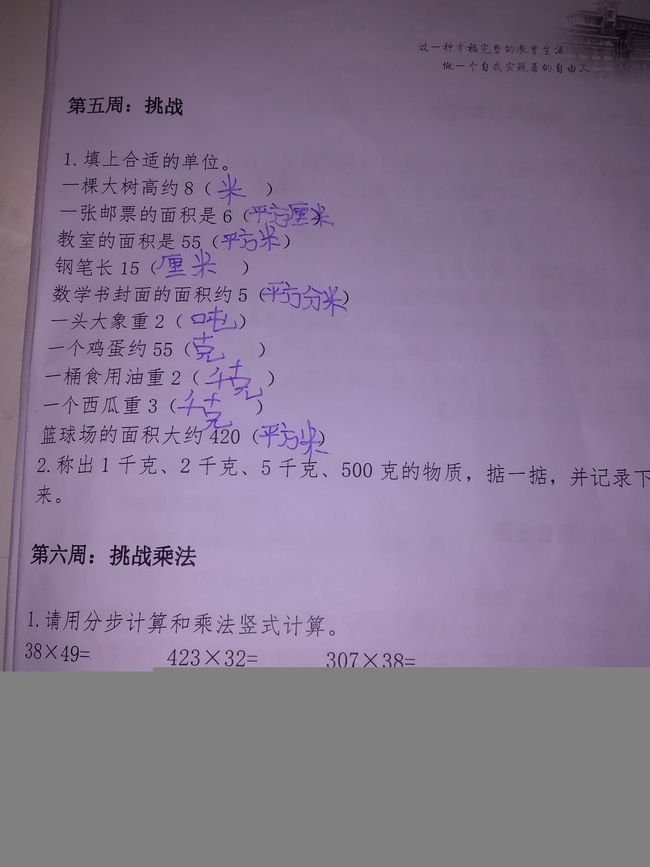 过一种幸福完整的教育生活
做一个自我实现着的自由人
第五周：挑战
1.填上合适的单位。
一棵大树高约8（米）
一张邮票的面积是6（平方厘米）
教室的面积是55（平方米）
钢笔长15（厘米）
数学书封面的面积约5（平方分米）
一头大象重2（吨）
一个鸡蛋约55（克）
一桶食用油重2（千克）
一个西瓜重3（千克）
篮球场的面积大约420（平方米）
2.称出1千克、2千克、5千克、500克的物质，掂一掂，并记录下
来。
第六周：挑战乘法
1.请用分步计算和乘法竖式计算。
38×49= 423×32= 307×38=